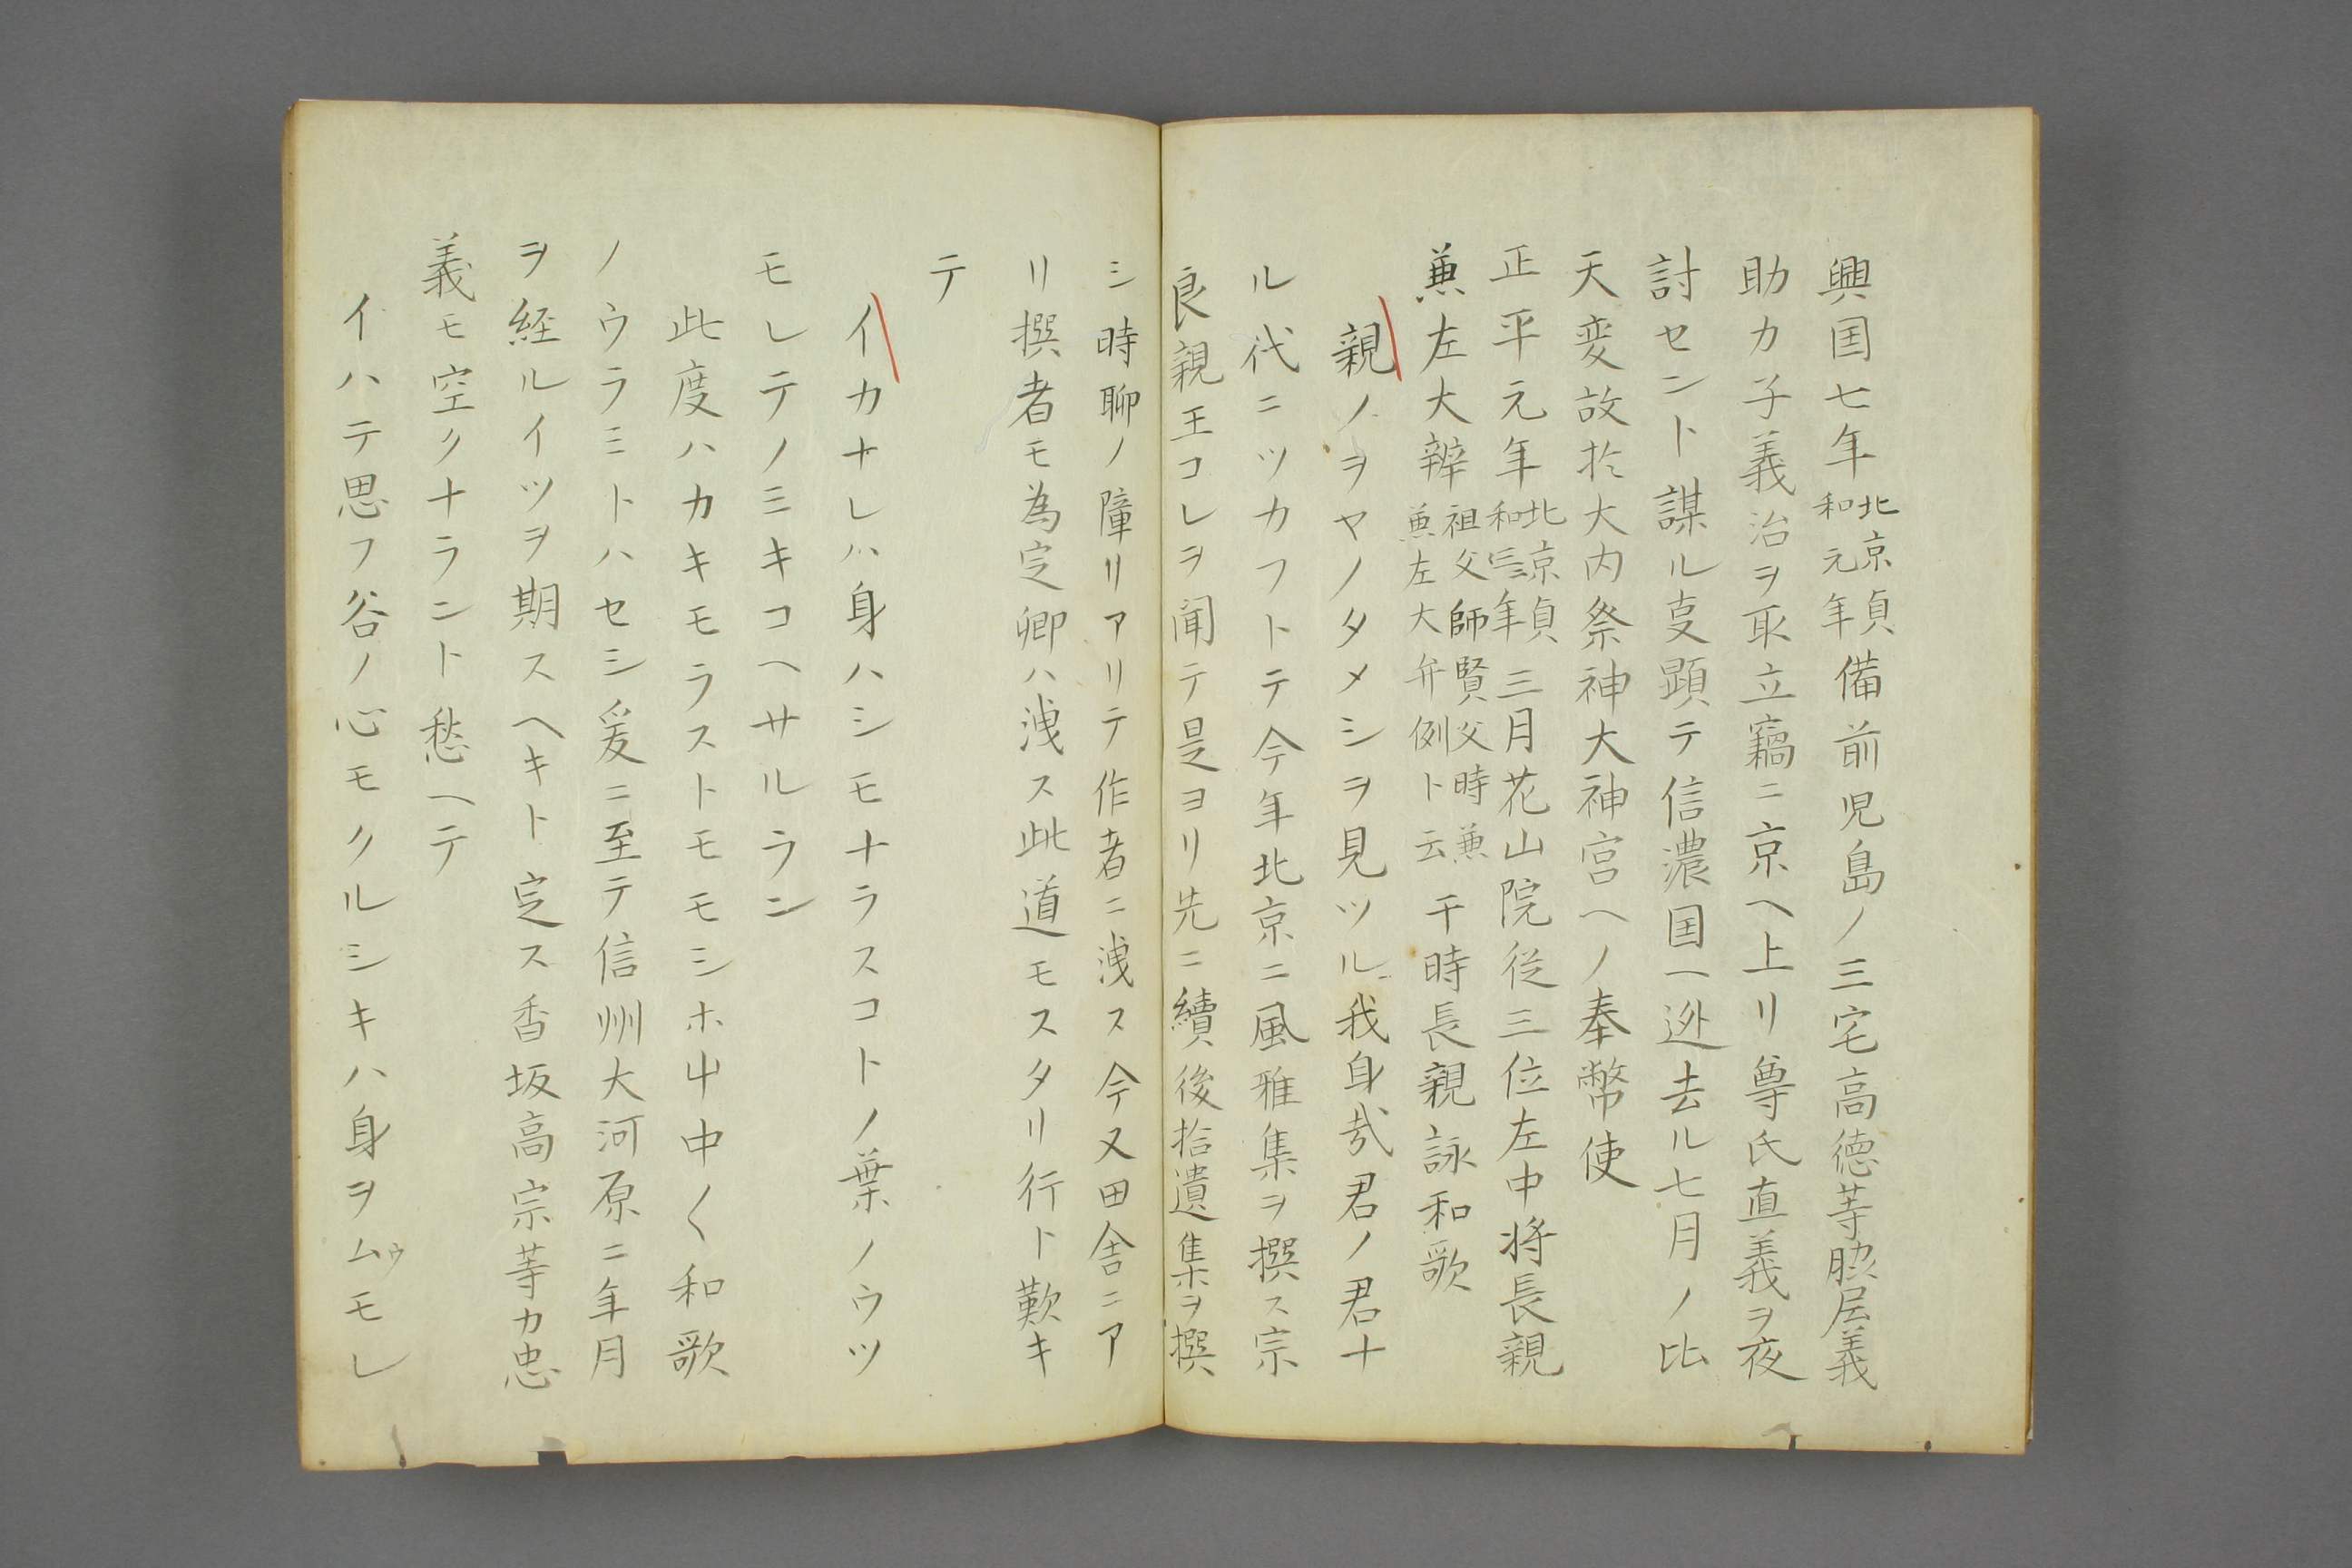 興国七年北京貞和元年備前児島ノ三宅高徳等脇屋義
助カ子義治ヲ取立竊ニ京ヘ上リ尊氏直義ヲ夜
討セント謀ル㕝顕テ信濃国ヘ迯去ル七月ノ比
天変故於大内祭神大神宮ヘノ奉幣使
正平元年北京貞和三年三月花山院従三位左中将長親
兼左大辨祖父師賢父時兼兼左大弁例ト云干時長親詠和歌
親ノヲヤノタメシヲ見ツル我身哉君ノ君ナ
ル代ニツカフトテ今年北京ニ風雅集ヲ撰ス宗
良親王コレヲ聞テ是ヨリ先ニ續後拾遺集ヲ撰
シ時聊ノ障リアリテ作者ニ洩ス今又田舎ニア
リ撰者モ為定卿ハ洩ス此道モスタリ行ト歎キ
テ
イカナレハ身ハシモナラスコトノ葉ノウツ
モレテノミキコヘサルラン
此度ハカキモラストモモシホ中中く和歌
ノウラミトハセシ爰ニ至テ信州大河原ニ年月
ヲ経ルイツヲ期スヘキト定ス香坂高宗等カ忠
義モ空クナラント愁ヘテ
イハテ思フ谷ノ心モクルシキハ身ヲムウモレ